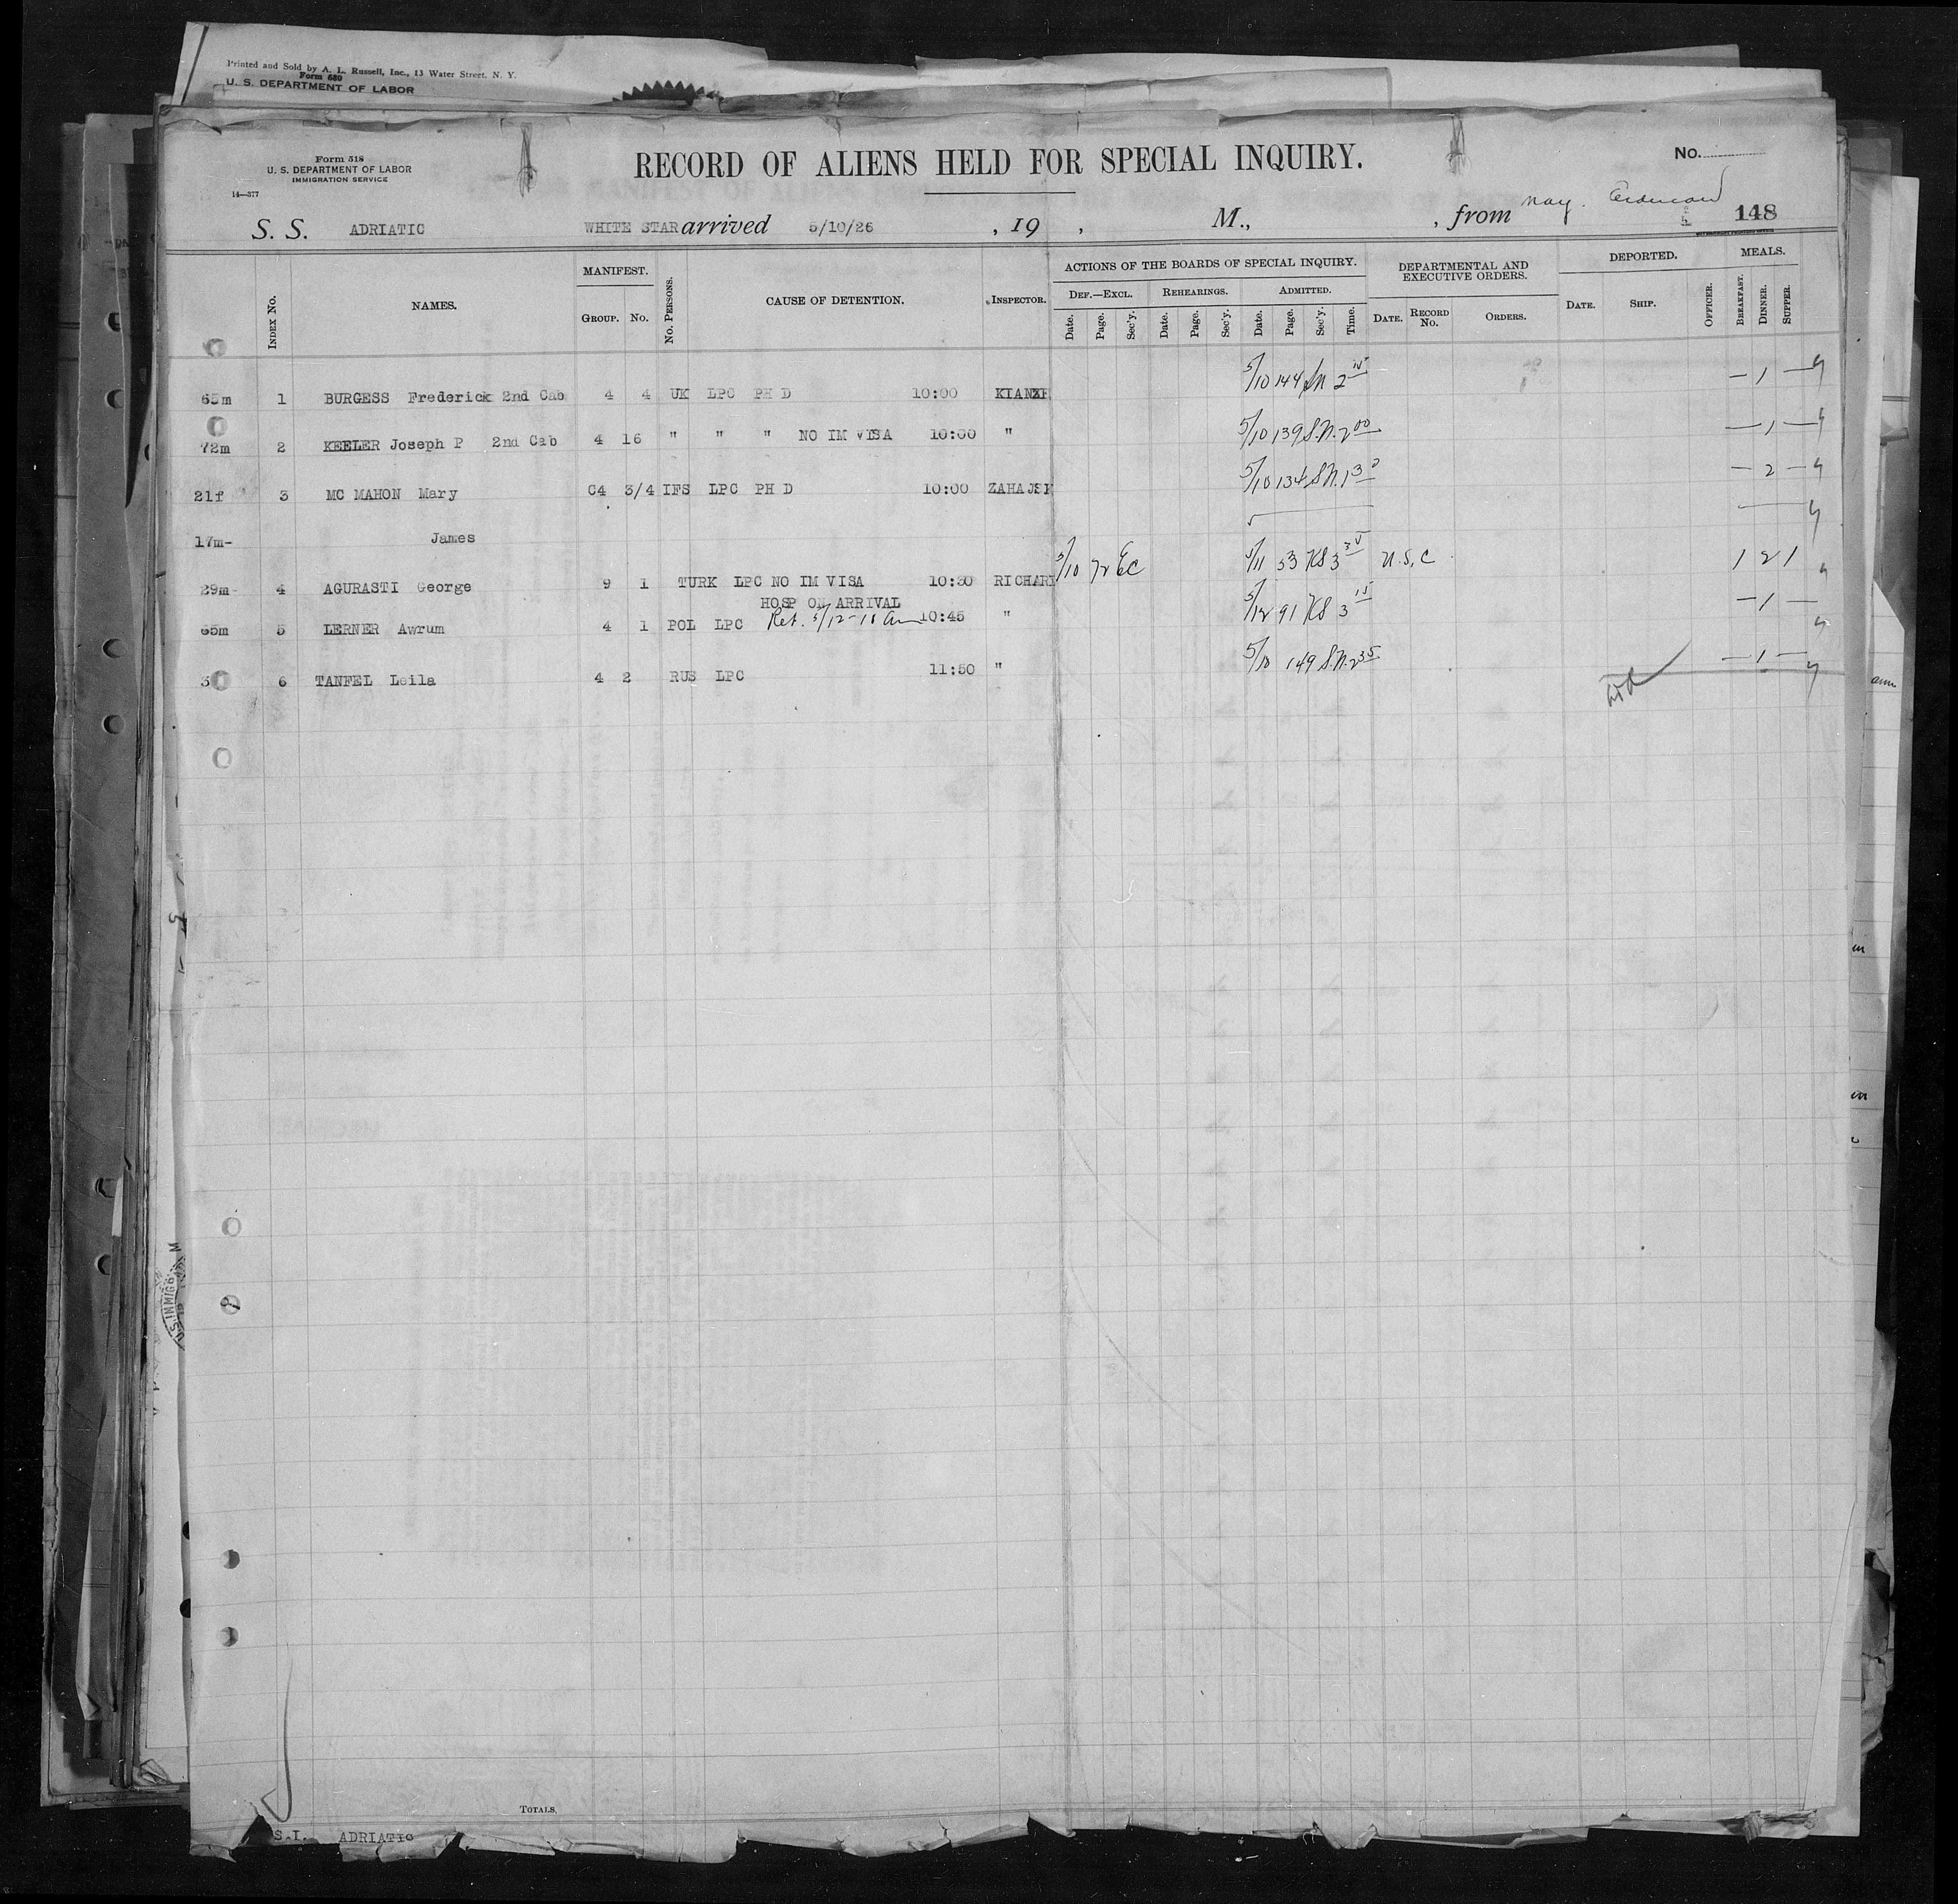 Printed and Sold by A. L. Russell, Inc., 13 Water Street, N. Y.
Form 680
U. S. DEPARTMENT OF LABOR
Form 518
U. S. DEPARTMENT OF LABOR
IMMIGRATION SERVICE
14—377
RECORD OF ALIENS HELD FOR SPECIAL INQUIRY.
No.
S. S. ADRIATIC WHITE STAR arrived 5/10/26, 19 , M., , from 148
INDEX No. NAMES. MANIFEST. GROUP. No. No. PERSONS. CAUSE OF DETENTION. INSPECTOR. ACTIONS OF THE BOARDS OF SPECIAL INQUIRY. DEF.—EXCL. Date. Page. Sec'y. REHEARINGS. Date. Page. Sec'y. ADMITTED. Date. Page. Sec'y. Time. DEPARTMENTAL AND EXECUTIVE ORDERS. DATE. RECORD No. ORDERS. DEPORTED. DATE. SHIP. OFFICER. MEALS. BREAKFAST. DINNER. SUPPER.
65m 1 BURGESS Frederick 2nd Cab 4 4 UK LPC PH D 10:00 5/10 144 2 15 — 1 —
72m 2 KEELER Joseph P 2nd Cab 4 16 " " " NO IM VISA 10:00 " 5/10 139 S.N. 2 00 — 1 —
21f 3 MC MAHON Mary C4 3/4 IFS LPC PH D 10:00 5/10 134 S.N. — 2 —
17m- James
29m- 4 AGURASTI George 9 1 TURK LPC NO IM VISA 10:30 RICHAR 5/10 72 EC 5/11 53 KS 3 U.S.C 1 2 1
HOSP ON ARRIVAL
65m 5 LERNER Awrum 4 1 POL LPC Ret. 5/12 10:45 " 5/12 91 KS 3 15 — 1 —
3 6 TANFEL Leila 4 2 RUS LPC 11:50 " 5/10 149 S.N. 2 35 — 1 —
TOTALS,
S.I. ADRIATIC